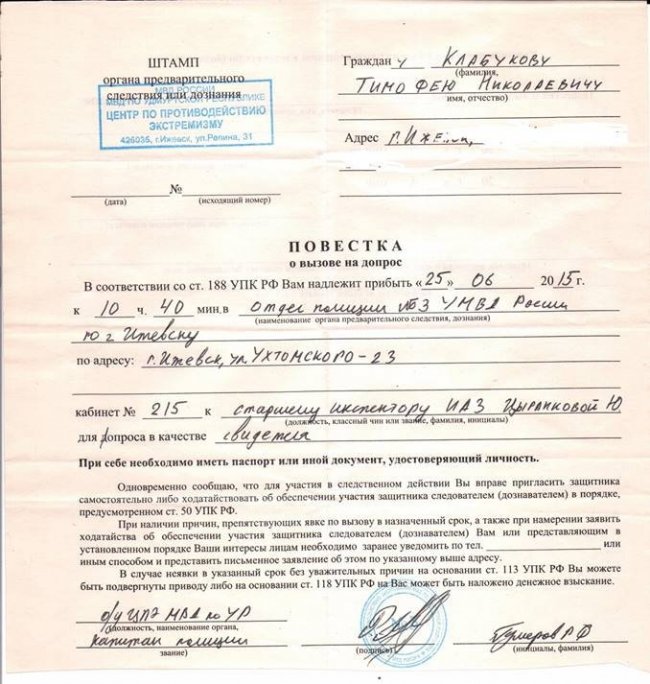 ШТАМП
органа предварительного
следствия или дознания
МВД РОССИИ
МВД ПО УДМУРТСКОЙ РЕСПУБЛИКЕ
ЦЕНТР ПО ПРОТИВОДЕЙСТВИЮ
ЭКСТРЕМИЗМУ
426035, г.Ижевск, ул.Репина, 31
(дата) № (исходящий номер)
Граждан у Клабукову
(фамилия,
Тимофею Николаевичу
имя, отчество)
Адрес г. Ижевск,
ПОВЕСТКА
о вызове на допрос
В соответствии со ст. 188 УПК РФ Вам надлежит прибыть «25» 06 2015г.
к 10 ч. 40 мин.в отдел полиции №3 УМВД России
(наименование органа предварительного следствия, дознания)
по г Ижевску
по адресу: г. Ижевск, ул. Ухтомского-23
кабинет № 215 к старшему инспектору ИАЗ Ю
(должность, классный чин или звание, фамилия, инициалы)
для допроса в качестве свидетеля
При себе необходимо иметь паспорт или иной документ, удостоверяющий личность.
Одновременно сообщаю, что для участия в следственном действии Вы вправе пригласить защитника
самостоятельно либо ходатайствовать об обеспечении участия защитника следователем (дознавателем) в порядке,
предусмотренном ст. 50 УПК РФ.
При наличии причин, препятствующих явке по вызову в назначенный срок, а также при намерении заявить
ходатайства об обеспечении участия защитника следователем (дознавателем) Вам или представляющим в
установленном порядке Ваши интересы лицам необходимо заранее уведомить по тел. или
иным способом и представить письменное заявление об этом по указанному выше адресу.
В случае неявки в указанный срок без уважительных причин на основании ст. 113 УПК РФ Вы можете
быть подвергнуты приводу либо на основании ст. 118 УПК РФ на Вас может быть наложено денежное взыскание.
о/у ЦПЭ МВД по УР
(должность, наименование органа,
капитан полиции
звание)
(подпись)
РФ
(инициалы, фамилия)